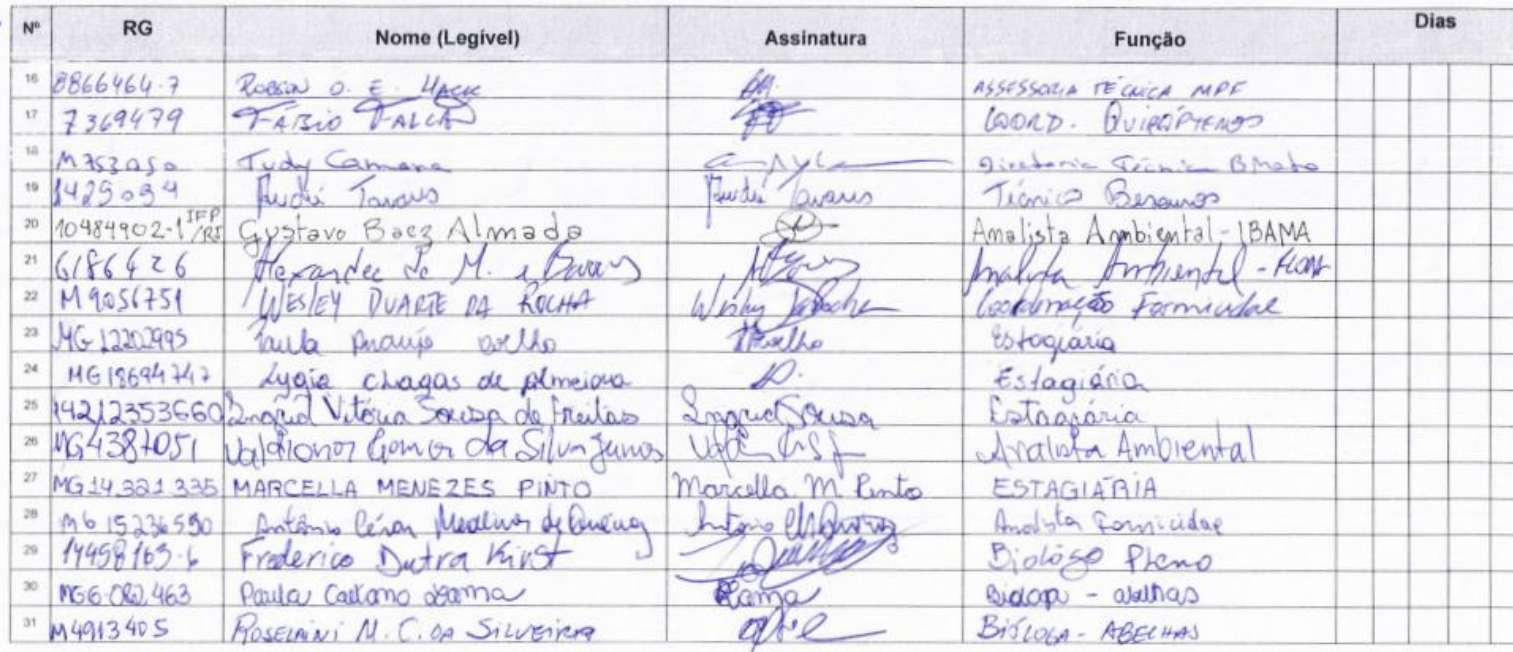 Nº RG Nome (Legível) Assinatura Função Dias
16 8866464-7 ROBSON O. E. HACK ASSESSORIA TÉCNICA MPF
17 7369479 FÁBIO FALCÃO COORD. QUIRÓPTEROS
18 M753050 Judy Camana Diretoria Técnica
19 1425094 André Tavares André Tavares Técnico Besouros
20 10484902-1 IFP/RJ Gustavo Baez Almada Analista Ambiental-IBAMA
21 6186626 Alexandre de M. e Barros Analista Ambiental -
22 M9056751 WESLEY DUARTE DA ROCHA Coordenação Formicidae
23 MG 12202995 Paula Araujo Estagiária
24 MG18694747 Lygia chagas de Almeida Estagiária
25 14212353660 Ingrid Vitória Sousa de Freitas Ingrid Sousa Estagiária
26 MG4387051 Valdionor Gomes da Silva Junior Analista Ambiental
27 MG14.321.335 MARCELLA MENEZES PINTO Marcella M Pinto ESTAGIÁRIA
28 MG 15236590 Antônio César Medeiros de Queiroz Antônio Analista Formicidae
29 14458163-6 Frederico Dutra Kirst Biólogo Pleno
30 Paula Caetano Zama Zama Bióloga - abelhas
31 M4913405 ROSELAINI M. C. DA SILVEIRA BIÓLOGA - ABELHAS